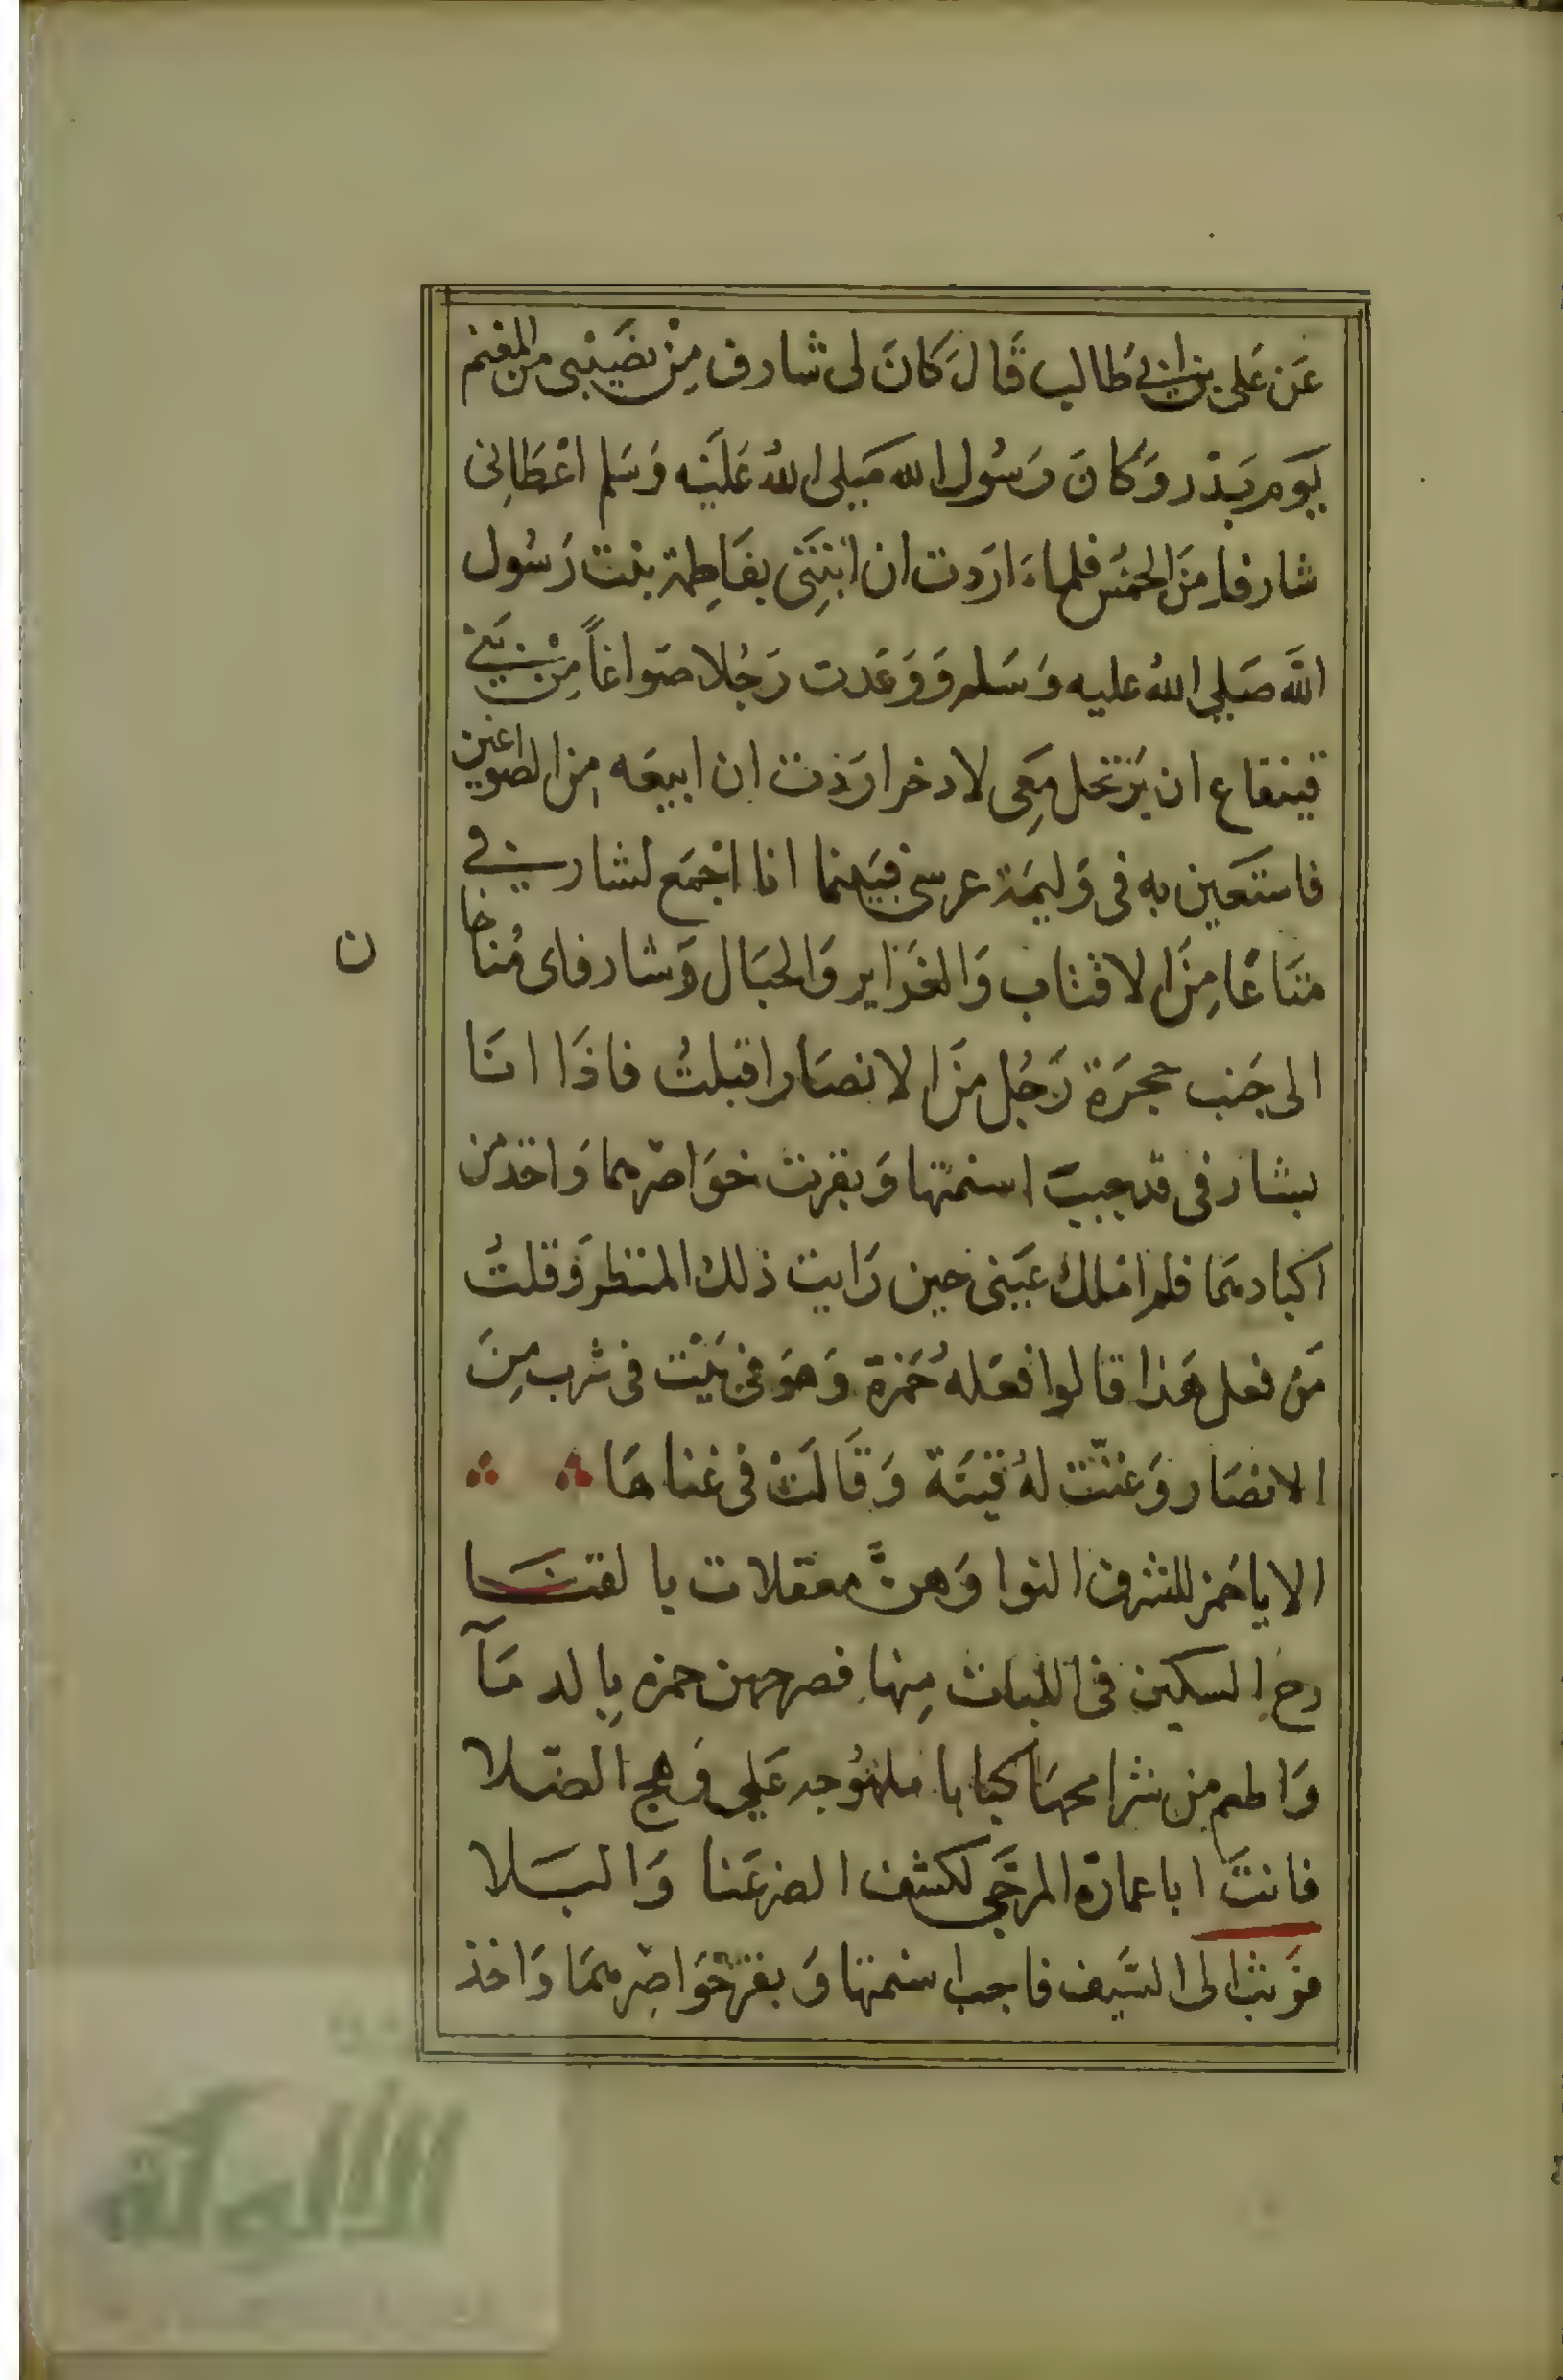 عَن عَلي بن ابي طَالب قَالَ كَانَ لى شارف مِنْ نصَيْبى من المغنم
يَوم بَدْر وَكانَ رَسُول الله صَلى اللهُ عَليْه وَسَلم اعْطَانِى
شارفا مِنَ الخمُس فلماءَ ارَدت ان ابْتَنِى بفَاطِمة بنت رَسُول
اللَه صَلي اللهُ عليه وَسَلم وَوَعَدت رَجُلا صَواغاً مِنْ بَنى
قينقاع ان يَرْتحل مَعِى لادخر ارَدْت ان ابيعَه مِن الصواغين
فاستَعين به فى وَليمَة عرسى فبَينما انا اجْمَع لشارفي
متَاعًا مِنَ الاقتاب وَالغَرَاير وَالحبَال وَشارفاى مُناخا
ن
الى جَنب حجرَة رَجُل منَ الانصَار اقبلتُ فاذَا انَا
بشارفى قد جببَت اسنمتها وَبقرت خوَاصرهما وَاخذ من
اكبادهَما فلم املك عيَنى حين رَايت ذلك المنظر وَقلتُ
مَن فعل هَذا قالوا فعَلهُ حَمزة وَهوَ فى بَيْت فى شرب مِنَ
الانصَار وَغنّت لهُ قينَة وَقَالَتْ فى غناهَا
الا ياحَمز للشرف النوا وَهنَّ معقلات بالفنَا
دع السكين فى اللبات مِنها فصرجهن حمزه بِالدمَآ
وَاطعم من شرامحها كبابا ملهوُجه عَلي وَهج الصّلا
فانتَ اباعمارَة المرجَى لكشف الضر عَنا وَالبَلا
فوَثب الى السَيف فاجب اسنمتها وَبقر خوَاصِرهمَا وَاخذ
الألوكة